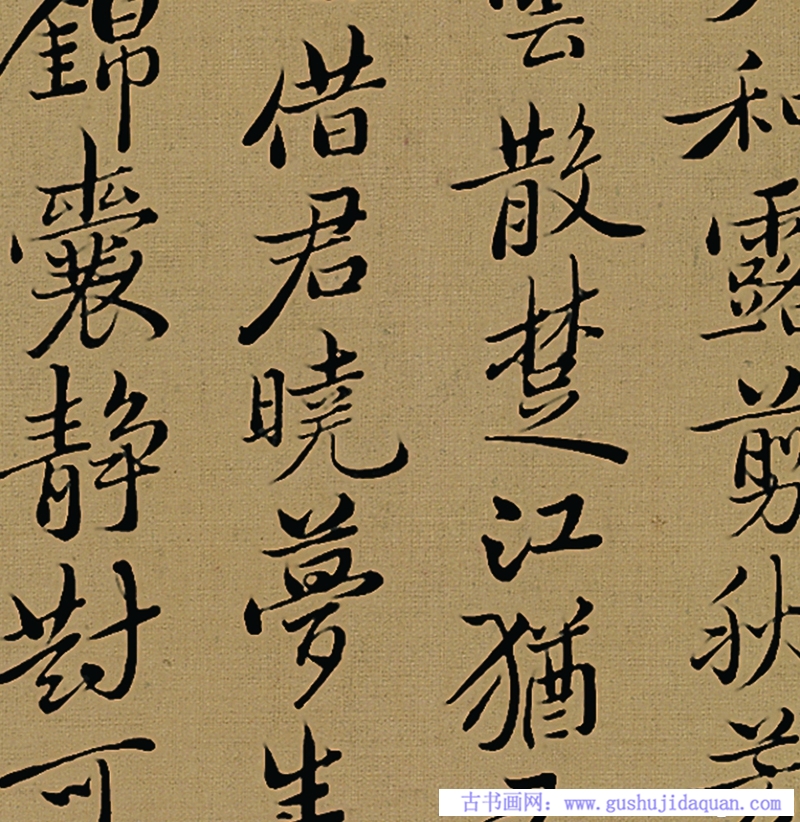 和露剪秋
雲散楚江猶
借君曉夢生
錦囊静對可
古书画网：www.gushujidaquan.com